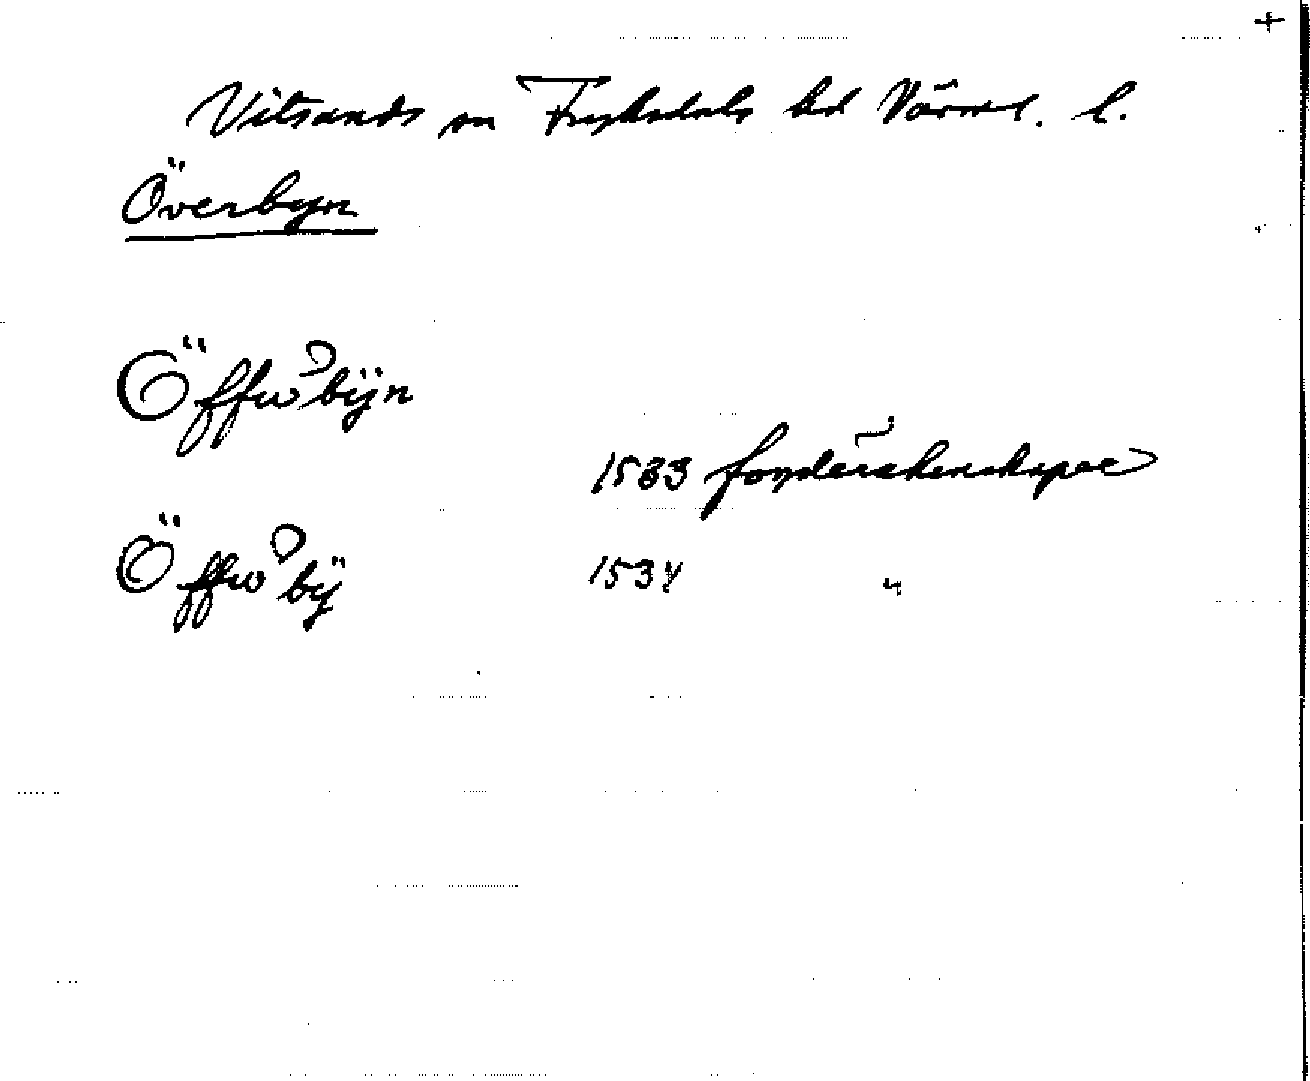 +
Vitsands sn Fryksdals hd Värml. l.
Överbyn
Öffw bÿn
1533 fogderäkenskaper
Öffw bÿ 1534 "